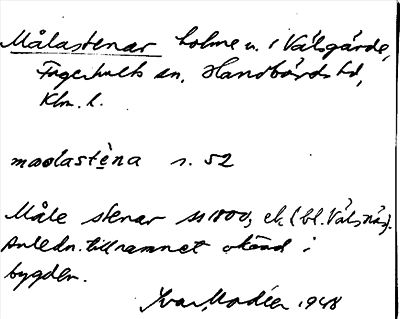 Målastenar holme u. i Välsgärde,
Fagerhults sn, Handbörds hd,
Klm. l.
maolastèna s. 52
Måle stenar 1800, ek (bl. Välsnäs).
Anledn. till namnet okänd i
bygden.
Ivar Modéer 1948